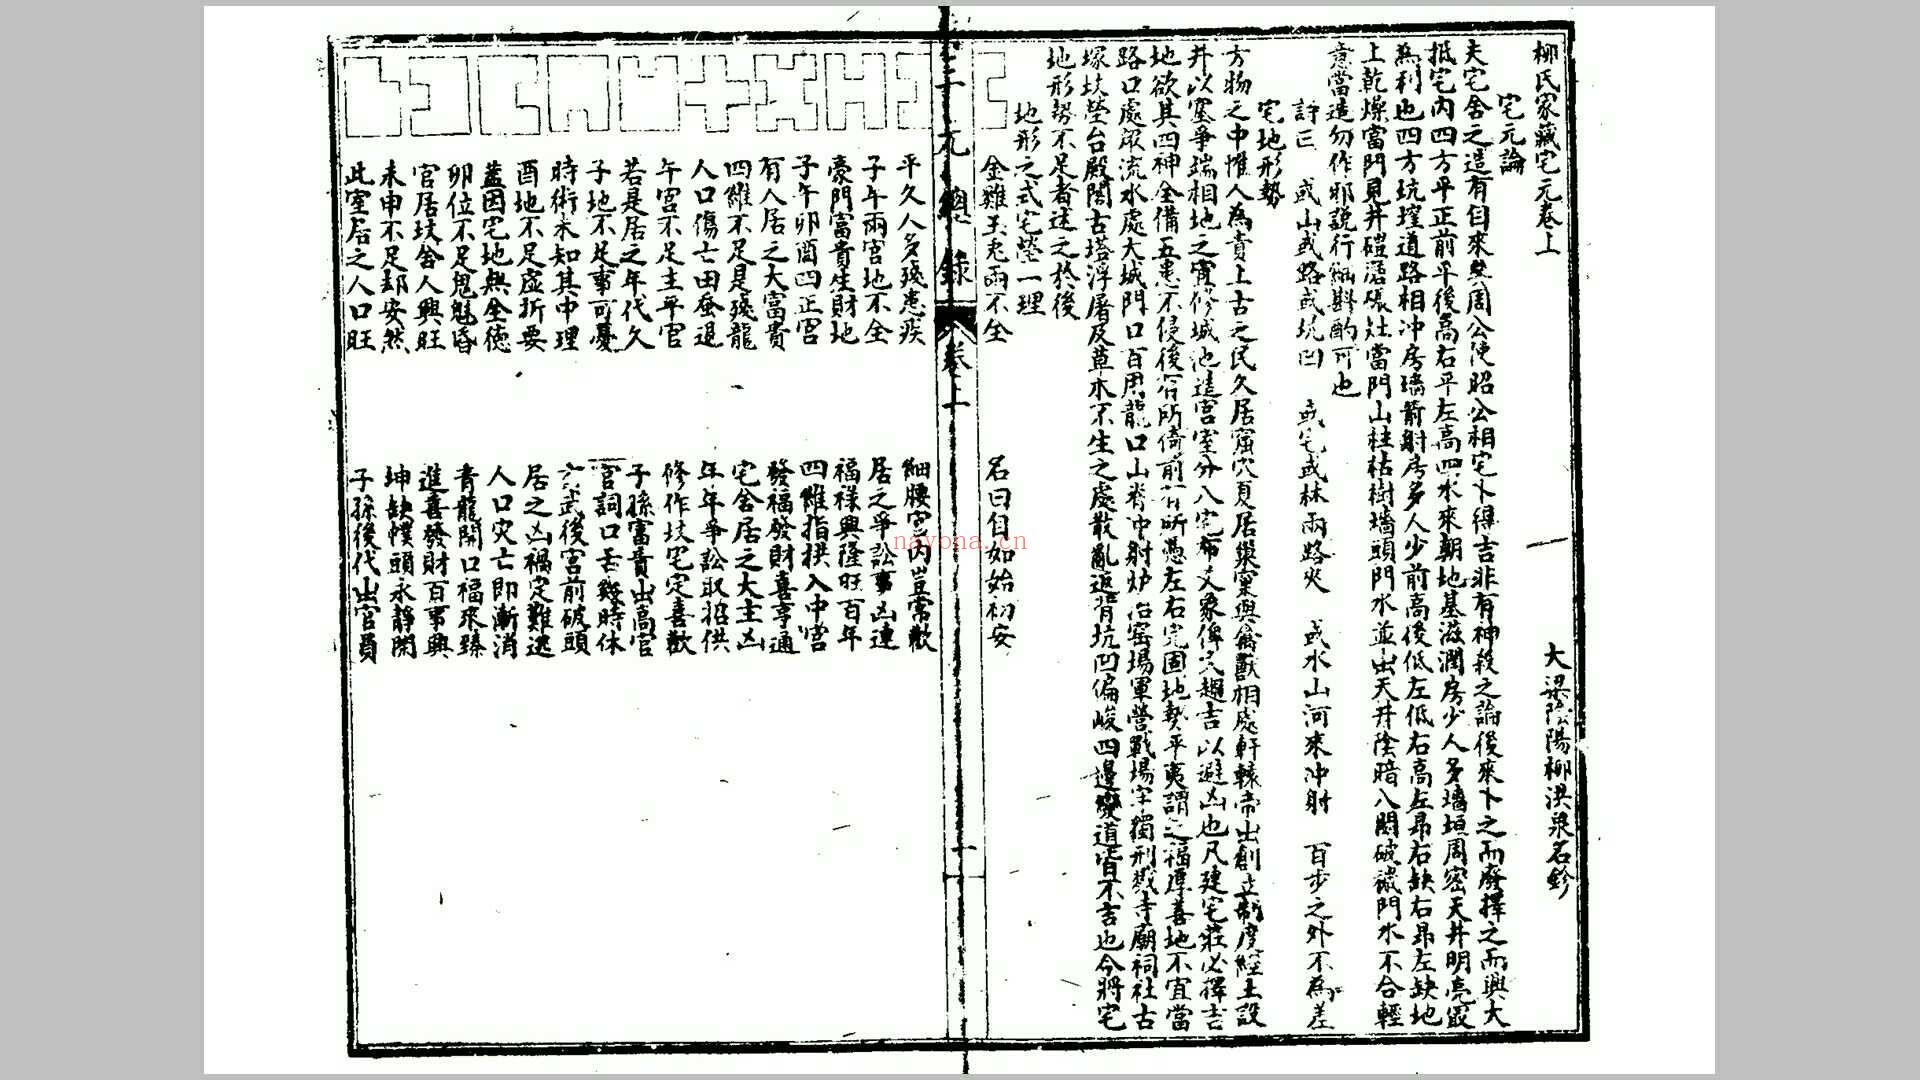 柳氏家藏宅元卷上
大梁陰陽柳洪泉名鈔
宅元論
夫宅舍之造有自來矣周公使昭公相宅卜得吉非有神殺之論後來卜之而廢擇之而興大
抵宅內四方平正前平後高右平左高四水來朝地基滋潤房少人多墻垣周密天井明亮最
為利也四方坑窪道路相冲房墻箭射房多人少前高後低左低右高左昂右缺右昂左缺地
上乾燥當門見井磑磨碾灶當門山柱枯樹墻頭門水並出天井陰暗八關破壞門水不合輕
意當造勿作耶説行細斟酌可也
許曰 或山或路或坑凹 或宅或林兩路夾 或水山河來冲射 百步之外不為差
宅地形勢
方物之中惟人為貴上古之民久居窟穴夏居巢窠與禽獸相處軒轅帝出創立制度經土設
井以塞爭端相地之宜修城池造宮室分八宅布爻象俾民趨吉以避凶也凡建宅莊必擇吉
地欲其四神全備五患不侵後有所倚前有所憑左右完固地勢平夷謂之福厚善地不宜當
路口處眾流水處大城門口百川龍口山脊冲射炉冶窑場軍營戰場字獨刑戮寺廟祠社古
塚坟塋台殿閣古塔浮屠及草木不生之處散亂返背坑凹偏峻四邊變道皆不吉也今將宅
地形势不足者述之於後
地形之式宅塋一理
金雞玉兎兩不全
名曰自如始初安
三元總錄
卷上
十
平久人多殘患疾
細腰宮内豈常歡
子午兩宮地不全
居之爭訟事凶連
豪門富貴生財地
福祿興隆旺百年
子午卯酉四正宮
四維指拱入中宮
有人居之大富貴
發福發財喜亨通
四維不足是殘龍
宅舍居之大主凶
人口傷亡田蚕退
年年爭訟取招供
午宮不足主平宮
修作坟宅定喜歡
若是居之年代久
子孫富貴出高官
子地不足事可憂
官詞口舌幾時休
時術未知其中理
玄武後宮前破頭
酉地不足虛折要
居之凶禍定難逃
蓋因宅地無全德
人口灾亡即漸消
卯位不足鬼魅昏
青龍開口福來臻
官居坟舍人興旺
進喜發財百事興
未申不足却安然
坤缺幞頭永靜閑
此室居之人口旺
子孫後代出官員
nayona.cn